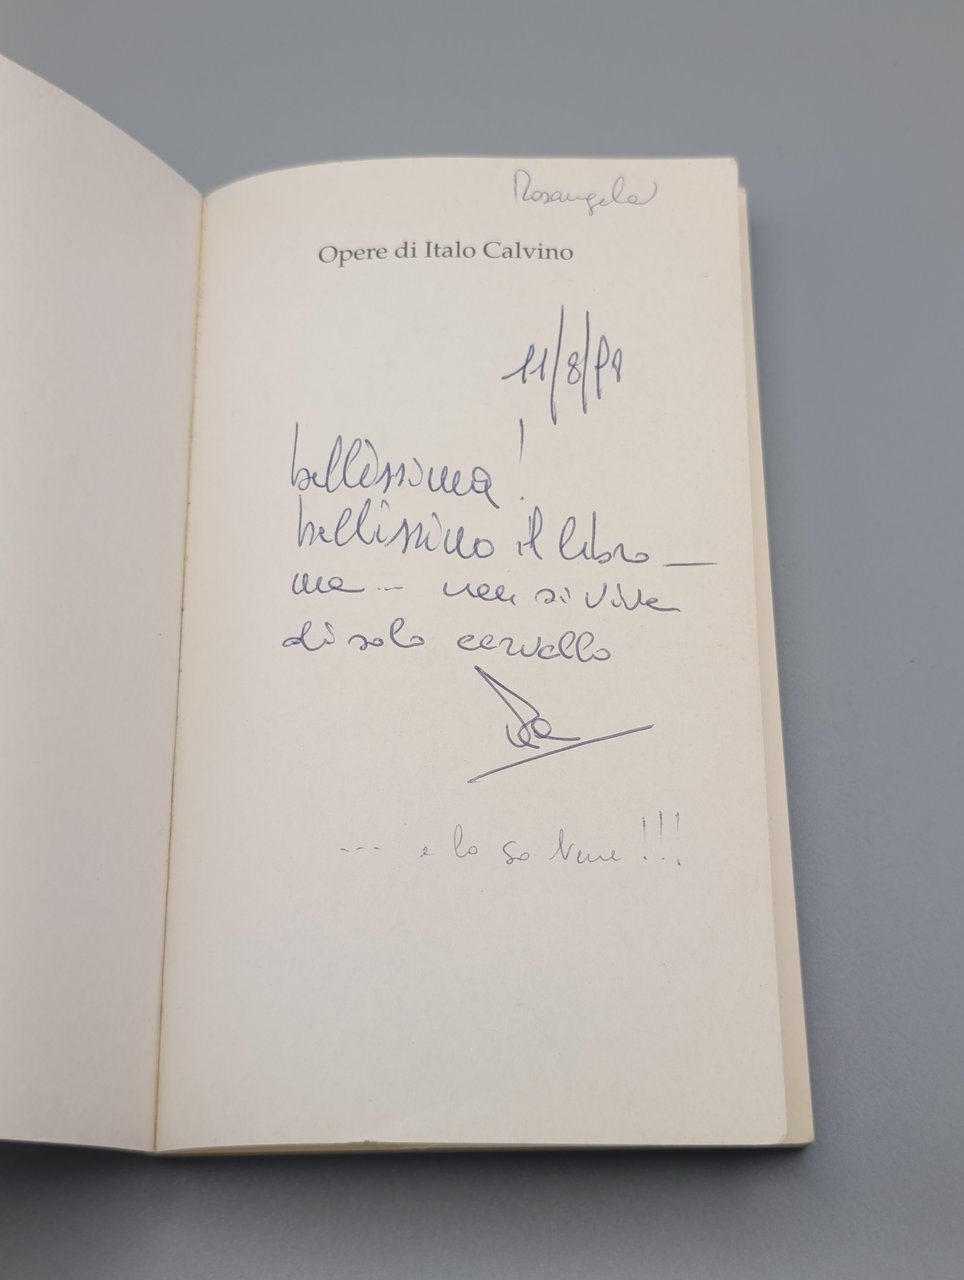 Rosangela
Opere di Italo Calvino
11/8/98
bellissima!
bellissimo il libro —
ma -- non si vive
di solo cervello
---- e lo so bene !!!